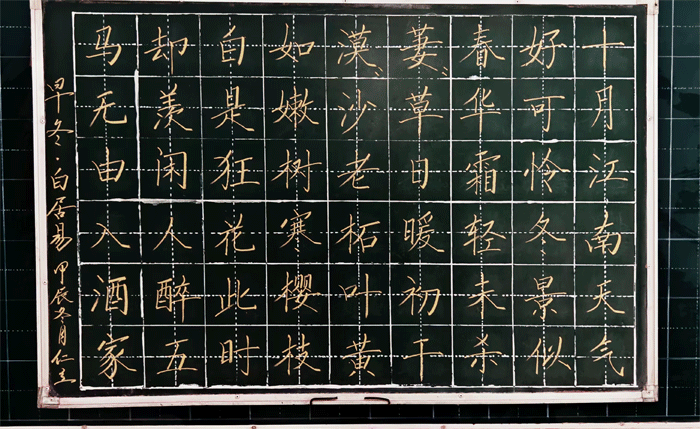 十月江南天气
好可怜冬景似
春华霜轻未杀
萋〻草日暖初干
漠〻沙老柘叶黄
如嫩树寒樱枝
白是狂花此时
却羡闲人醉五
马无由入酒家
早冬·白居易 甲辰冬月 仁立